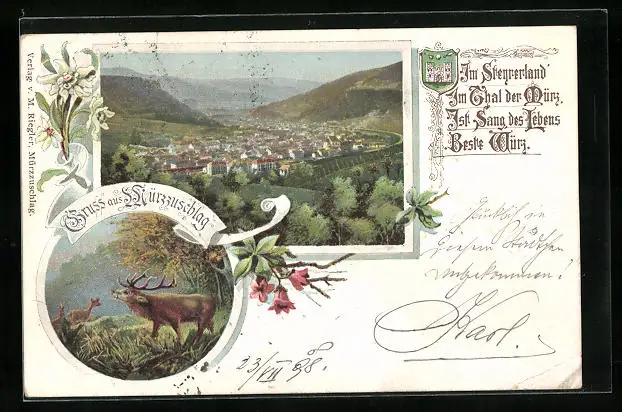 Verlag v. M. Riegler, Mürzzuschlag.
Im Steyrerland
Im Thal der Mürz.
Ist Sang des Lebens
Beste Würz.
Gruss aus Mürzzuschlag
Glücklich in
diesem Städtchen
angekommen!
Karl.
23/VII 98.